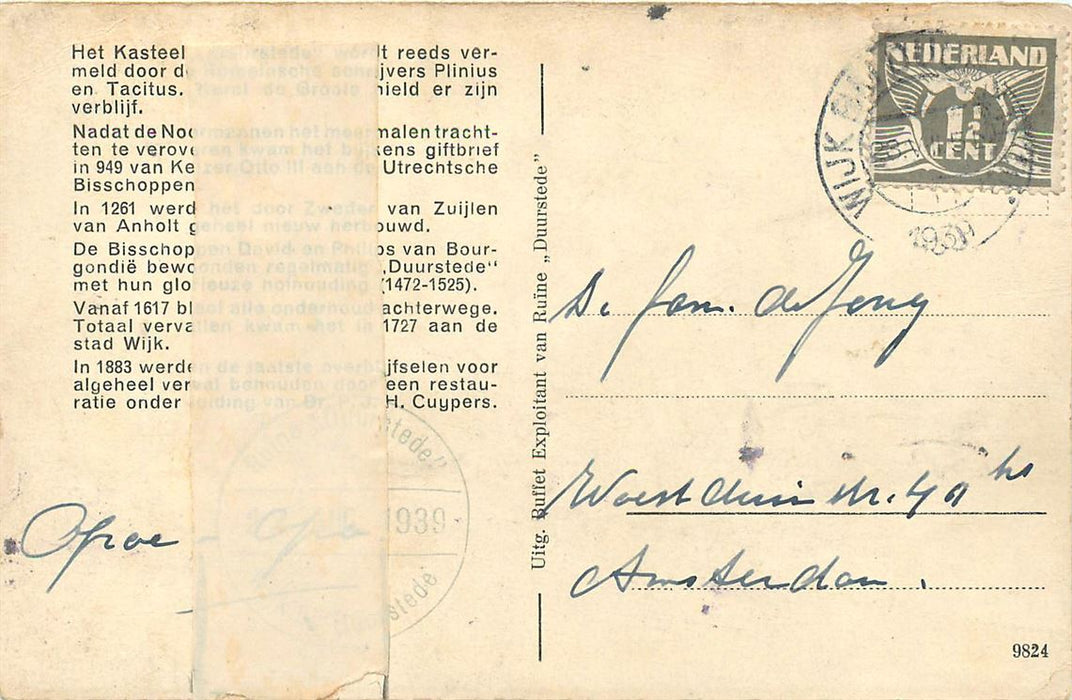 Het Kasteel „Duurstede“ wordt reeds ver-
meld door de Romeinsche schrijvers Plinius
en Tacitus. Karel de Groote hield er zijn
verblijf.
Nadat de Noormannen het meermalen tracht-
ten te veroveren kwam het bij kens giftbrief
in 949 van Keizer Otto III aan de Utrechtsche
Bisschoppen
In 1261 werd het door Zweder van Zuijlen
van Anholt geheel nieuw herbouwd.
De Bisschoppen David en Philips van Bour-
gondië bewoonden regelmatig „Duurstede“
met hun glorieuze hofhouding (1472-1525).
Vanaf 1617 bleef alle onderhoud achterwege.
Totaal vervallen kwam het in 1727 aan de
stad Wijk.
In 1883 werden de laatste overblijfselen voor
algeheel verval behouden door een restau-
ratie onder leiding van Dr. P. J. H. Cuypers.
Opoe - Opa
stede“
1939
stede
Uitg. Buffet Exploitant van Ruïne „Duurstede”
NEDERLAND
1½
CENT
WIJK BIJ
1939
Fam. de Jong
Woestduinstr. 49 hs
Amsterdam.
9824